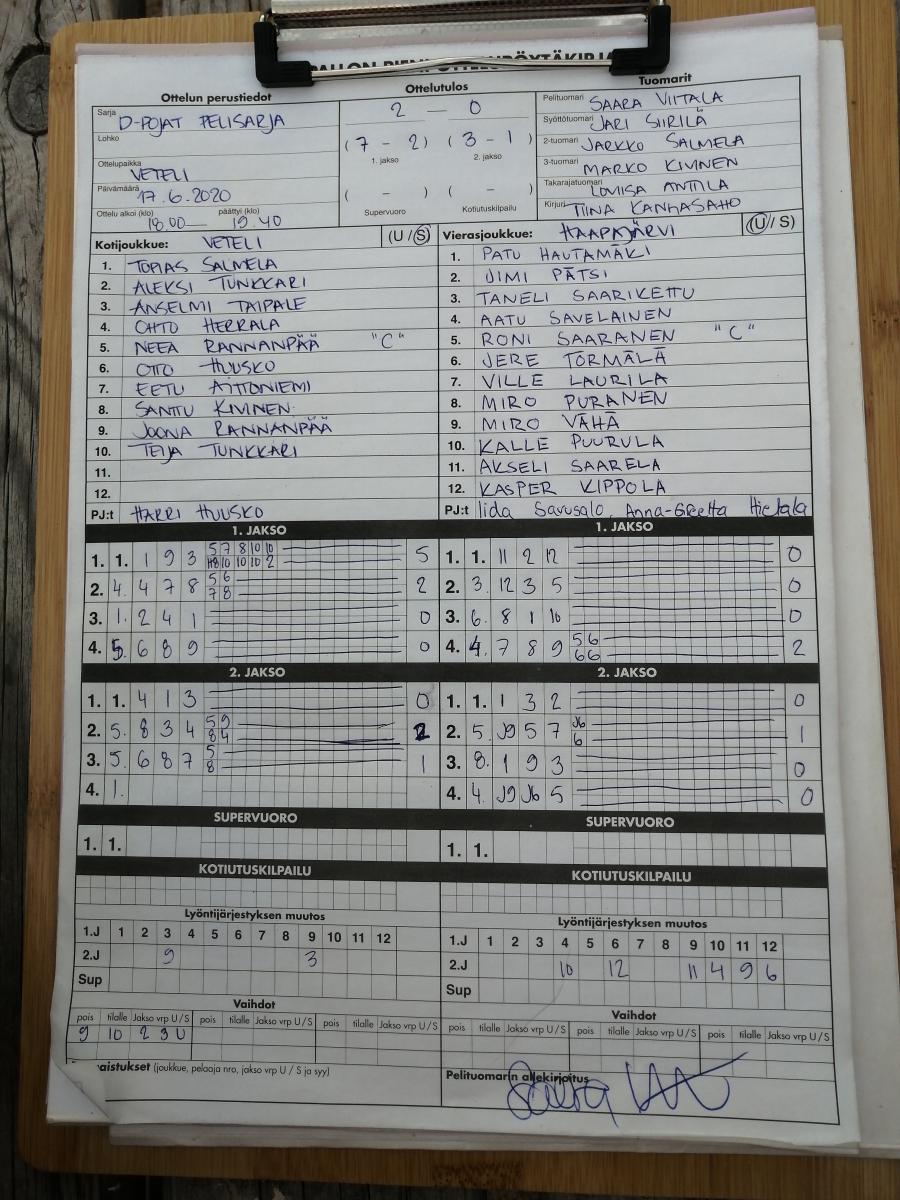 Ottelun perustiedot
Sarja D-POJAT PELISARJA
Lohko
Ottelupaikka VETELI
Päivämäärä 17.6.2020
Ottelu alkoi (klo) 18.00 päättyi (klo) 19.40
Ottelutulos
2 — 0
(7 - 2) (3 - 1)
1. jakso 2. jakso
( - ) ( - )
Supervuoro Kotiutuskilpailu
Tuomarit
Pelituomari SAARA VIITALA
Syöttötuomari JARI SIIRILÄ
2-tuomari JARKKO SALMELA
3-tuomari MARKO KIVINEN
Takarajatuomari LOVISA ANTILA
Kirjuri TIINA KANGASAHO
Kotijoukkue: VETELI (U / S)
1. TOPIAS SALMELA
2. ALEKSI TUNKKARI
3. ANSELMI TAIPALE
4. OHTO HERRALA
5. NEEA RANNANPÄÄ "C"
6. OTTO HUUSKO
7. EETU AITTONIEMI
8. SANTTU KIVINEN
9. JOONA RANNANPÄÄ
10. TEIJA TUNKKARI
11.
12.
PJ:t HARRI HUUSKO
Vierasjoukkue: HAAPAJÄRVI (U / S)
1. PATU HAUTAMÄKI
2. JIMI PÄTSI
3. TANELI SAARIKETTU
4. AATU SAVELAINEN
5. RONI SAARANEN "C"
6. JERE TÖRMÄLÄ
7. VILLE LAURILA
8. MIRO PURANEN
9. MIRO VÄHÄ
10. KALLE PUURULA
11. AKSELI SAARELA
12. KASPER KIPPOLA
PJ:t Iida Savusalo, Anna-Greetta Hietala
1. JAKSO
1. 1. 1 9 3 5 7 8 10 10 5
10 10 2
2. 4. 4 7 8 5 6 2
7 8
3. 1. 2 4 1 0
4. 5. 6 8 9 0
1. JAKSO
1. 1. 11 2 12 0
2. 3. 12 3 5 0
3. 6. 8 1 10 0
4. 4. 7 8 9 5 6 2
6 6
2. JAKSO
1. 1. 4 1 3 0
2. 5. 8 3 4 5 9 2
8 4
3. 5. 6 8 7 5 1
8
4. 1.
2. JAKSO
1. 1. 1 3 2 0
2. 5. J9 5 7 J6 1
6
3. 8. 1 9 3 0
4. 4. J9 J6 5 0
SUPERVUORO
1. 1.
SUPERVUORO
1. 1.
KOTIUTUSKILPAILU
KOTIUTUSKILPAILU
Lyöntijärjestyksen muutos
1.J 1 2 3 4 5 6 7 8 9 10 11 12
2.J 9 3
Sup
Lyöntijärjestyksen muutos
1.J 1 2 3 4 5 6 7 8 9 10 11 12
2.J 10 12 11 4 9 6
Sup
Vaihdot
pois tilalle Jakso vrp U/S pois tilalle Jakso vrp U/S pois tilalle Jakso vrp U/S
9 10 2 3 U
Vaihdot
pois tilalle Jakso vrp U/S pois tilalle Jakso vrp U/S pois tilalle Jakso vrp U/S
(joukkue, pelaaja nro, jakso vrp U / S ja syy)
Pelituomarin allekirjoitus